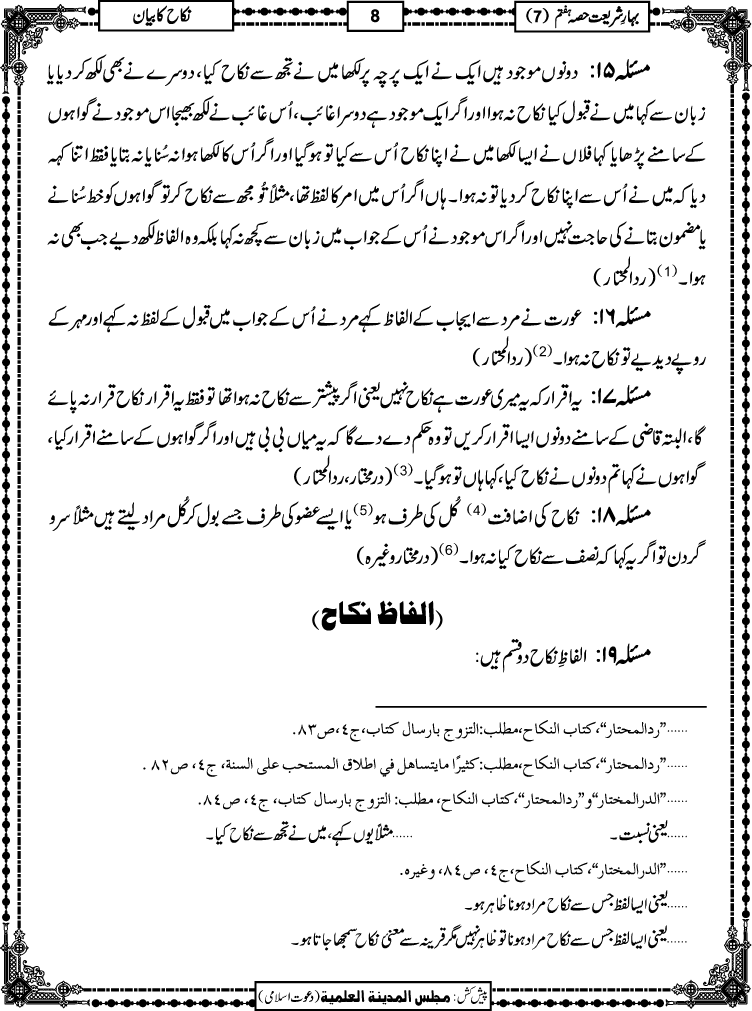 بہارِ شریعت حصہ ہفتم (7)
8
نکاح کا بیان
مسئلہ ۱۵: دونوں موجود ہیں ایک نے ایک پرچہ پر لکھا میں نے تجھ سے نکاح کیا، دوسرے نے بھی لکھ کر دیا یا
زبان سے کہا میں نے قبول کیا نکاح نہ ہوا اور اگر ایک موجود ہے دوسرا غائب، اُس غائب نے لکھ بھیجا اس موجود نے گواہوں
کے سامنے پڑھا یا کہا فلاں نے ایسا لکھا میں نے اپنا نکاح اُس سے کیا تو ہو گیا اور اگر اُس کا لکھا ہوا نہ سُنایا نہ بتایا فقط اتنا کہہ
دیا کہ میں نے اُس سے اپنا نکاح کر دیا تو نہ ہوا۔ ہاں اگر اُس میں امر کا لفظ تھا، مثلاً تُو مجھ سے نکاح کر تو گواہوں کو خط سُنانے
یا مضمون بتانے کی حاجت نہیں اور اگر اس موجود نے اُس کے جواب میں زبان سے کچھ نہ کہا بلکہ وہ الفاظ لکھ دیے جب بھی نہ
ہوا۔(1) (ردالمحتار)
مسئلہ ۱۶: عورت نے مرد سے ایجاب کے الفاظ کہے مرد نے اُس کے جواب میں قبول کے لفظ نہ کہے اور مہر کے
روپے دیدیے تو نکاح نہ ہوا۔(2) (ردالمحتار)
مسئلہ ۱۷: یہ اقرار کہ یہ میری عورت ہے نکاح نہیں یعنی اگر پیشتر سے نکاح نہ ہوا تھا تو فقط یہ اقرار نکاح قرار نہ پائے
گا، البتہ قاضی کے سامنے دونوں ایسا اقرار کریں تو وہ حکم دے دے گا کہ یہ میاں بی بی ہیں اور اگر گواہوں کے سامنے اقرار کیا،
گواہوں نے کہا تم دونوں نے نکاح کیا، کہا ہاں تو ہو گیا۔(3) (درمختار، ردالمحتار)
مسئلہ ۱۸: نکاح کی اضافت(4) کُل کی طرف ہو(5) یا ایسے عضو کی طرف جسے بول کر کُل مراد لیتے ہیں مثلاً سر و
گردن تو اگر یہ کہا کہ نصف سے نکاح کیا نہ ہوا۔(6) (درمختار وغیرہ)
(الفاظ نکاح)
مسئلہ ۱۹: الفاظِ نکاح دو قسم ہیں:
......”ردالمحتار“، کتاب النکاح، مطلب: التزوج بارسال کتاب، ج٤، ص٨٣.
......”ردالمحتار“، کتاب النکاح، مطلب: کثیرًا مایتساهل في اطلاق المستحب علی السنة، ج٤، ص٨٢.
......”الدرالمختار“و”ردالمحتار“، کتاب النکاح، مطلب: التزوج بارسال کتاب، ج٤، ص٨٤.
......یعنی نسبت۔ ......مثلاً یوں کہے، میں نے تجھ سے نکاح کیا۔
......”الدرالمختار“، کتاب النکاح، ج٤، ص٨٤، وغیرہ.
......یعنی ایسا لفظ جس سے نکاح مراد ہونا ظاہر ہو۔
......یعنی ایسا لفظ جس سے نکاح مراد ہونا تو ظاہر نہیں مگر قرینہ سے معنیٔ نکاح سمجھا جاتا ہو۔
پیش کش: مجلس المدینة العلمیة (دعوتِ اسلامی)